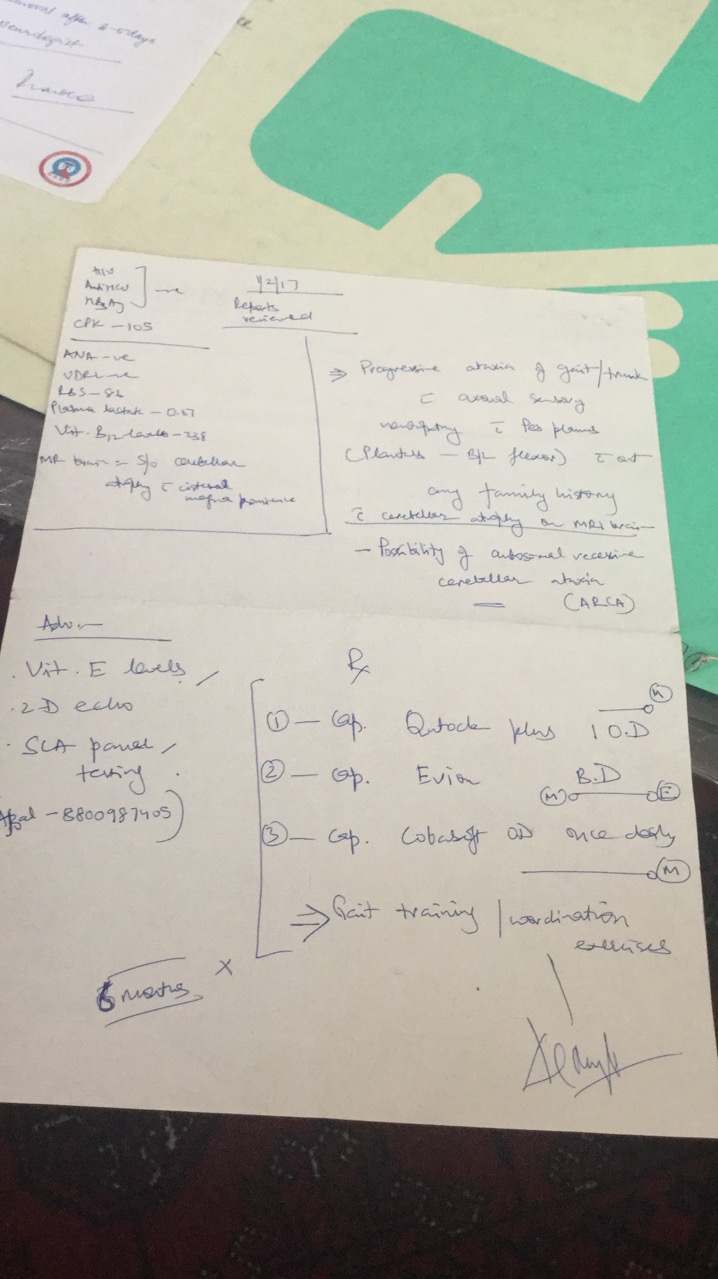 after 2-5 days
HIV
Anti HCV
HBsAg
-ve
CPK - 105
1/2/17
Reports
reviewed
ANA -ve
VDRL -ve
RBS - 86
Plasma lactate - 0.67
Vit. B12 levels - 238
MR brain = S/o cerebellar
atrophy c̄ cisterna
magna prominence
⇒ Progressive ataxia of gait/trunk
c̄ axonal sensory
neuropathy c̄ Pes planus
(Planters - B/L flexor) c̄ out
any family history
c̄ cerebellar atrophy on MRI brain
- Possibility of autosomal recessive
cerebellar ataxia
(ARCA)
Adv
. Vit. E levels
. 2D echo
. SCA panel
testing
- 8800987405)
Rx
① - Cap. plus 1 O.D
② - Cap. Evion B.D
(M) (E)
③ - Cap. Cobasoft OD once daily
(M)
⇒ Gait training / coordination
exercises
x
6 months